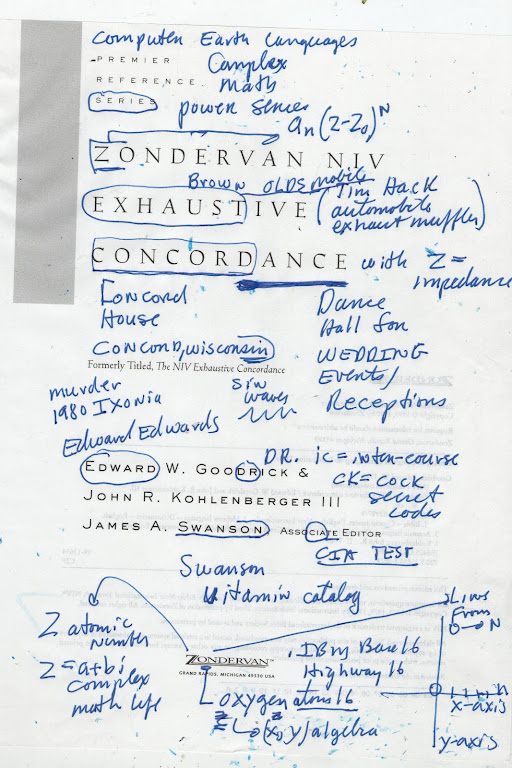 Computer Earth Languages
PREMIER Complex
REFERENCE math
SERIES power series
an(z-z0)^N
ZONDERVAN NIV
Brown OLDSmobile
EXHAUSTIVE (Tim Hack
automobile
exhaust muffler)
CONCORDANCE with Z =
impedance
Concord Dance
House Hall for
CONCORD, wisconsin WEDDING
Formerly Titled, The NIV Exhaustive Concordance Events/
murder sin Receptions
1980 IXonia waves
Edward Edwards
DR. ic = inter-course
EDWARD W. GOODRICK & CK = COCK
secret
JOHN R. KOHLENBERGER III codes
JAMES A. SWANSON ASSOCIATE EDITOR
CIA TEST
Swanson
vitamin catalog
Line
From
0→N
Z atomic
number
Z = a+bi
complex
math life
ZONDERVAN™
GRAND RAPIDS, MICHIGAN 49530 USA
IBM Base 16
Highway 16
oxygen atoms 16
x-axis
(x, y) algebra
y-axis